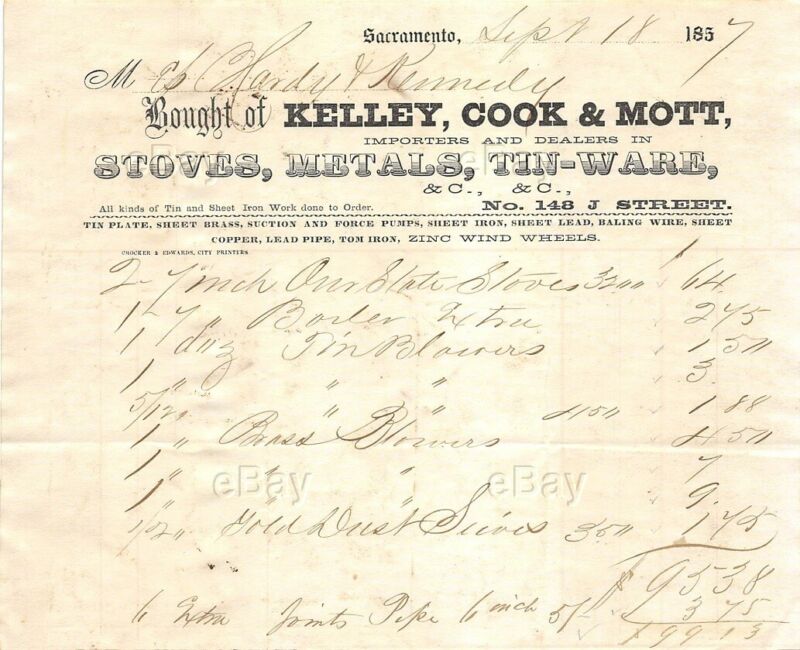 Sacramento, Sept 18 1857
M Hardy & Kennedy
Bought of KELLEY, COOK & MOTT,
IMPORTERS AND DEALERS IN
STOVES, METALS, TIN-WARE,
&C., &C.,
All kinds of Tin and Sheet Iron Work done to Order. No. 148 J STREET.
TIN PLATE, SHEET BRASS, SUCTION AND FORCE PUMPS, SHEET IRON, SHEET LEAD, BALING WIRE, SHEET
COPPER, LEAD PIPE, TOM IRON, ZINC WIND WHEELS.
CROCKER & EDWARDS, CITY PRINTERS
2 7 inch Our State Stoves 32 00 64
1 7 " Boiler Extra 2 75
1 doz Tin Blowers 1 50
1 " " " 3
5/12 " " " 4 50 1 88
1 " Brass Blowers 4 50
1 " " " 7
1 " " " 9
1/2 " Gold Dust Seives 3 50 1 75
$ 95 38
6 Extra Joints Pipe 6 inch 5/ 3 75
$99 13
eBay
eBay
eBay
eBay